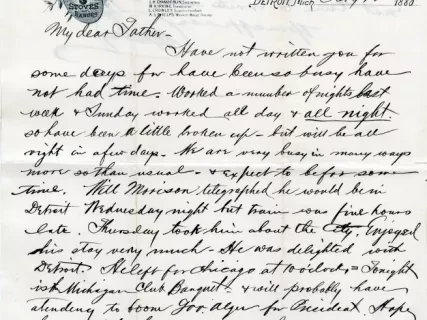 STOVES
RANGES
DETROIT, Mich. 188
My dear Father-
Have not written you for
some days for have been so busy have
not had time. Worked a number of nights last
week & Sunday worked all day & all night.
so have been a little broken up - but will be all
right in a few days. We are very busy in many ways
more so than usual - & expect to be for some
time. Will Morrison telegraphed he would be in
Detroit Wednesday night but train was five hours
late. Thursday took him about the city. Enjoyed
his stay very much - He was delighted with
Detroit. He left for Chicago at 10 oclock = Tonight
is Michigan Club Banquet - & will probably have
atending to boom Gov. Alger for President. Hope